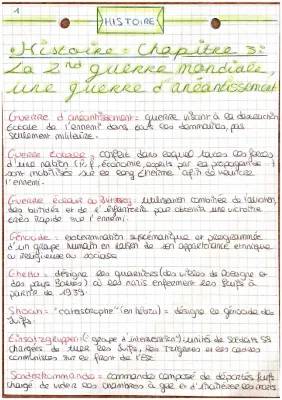 1
HISTOIRE
Histoire = Chapitre 3:
La 2nd guerre mondiale,
une guerre d'anéantissement
Guerre d'anéantissement = guerre visant à la destruction
totale de l'ennemi dans tous ces domaines, pas
seulement militaire.
Guerre totale = conflit dans lequel toutes les forces
d'une nation, économie, esprits par la propagande
sont mobilisés sur le long terme afin de vaincre
l'ennemi.
Guerre éclair ou Blitzkrieg = utilisation combinée de l'aviation,
des blindés et de l'infanterie pour obtenir une victoire
très rapide sur l'ennemi.
Génocide = extermination systématique et programmée
d'un groupe humain en raison de son appartenance ethnique
ou religieuse ou sociale
Ghetto = désigne les quartiers (des villes de Pologne et
des pays Baltes) où les nazis enferment les Juifs à
partir de 1939.
Shoah = "catastrophe" (en hébreu) = désigne le génocide des
Juifs.
Einsatzgruppen (groupe d'intervention) unités de soldats SS
chargées de tuer les Juifs, les Tziganes et les cadres
communistes sur le front de l'Est.
Sonderkommandos = commando composé de déportés juifs
chargé de vider les chambres à gaz et d'les morts.